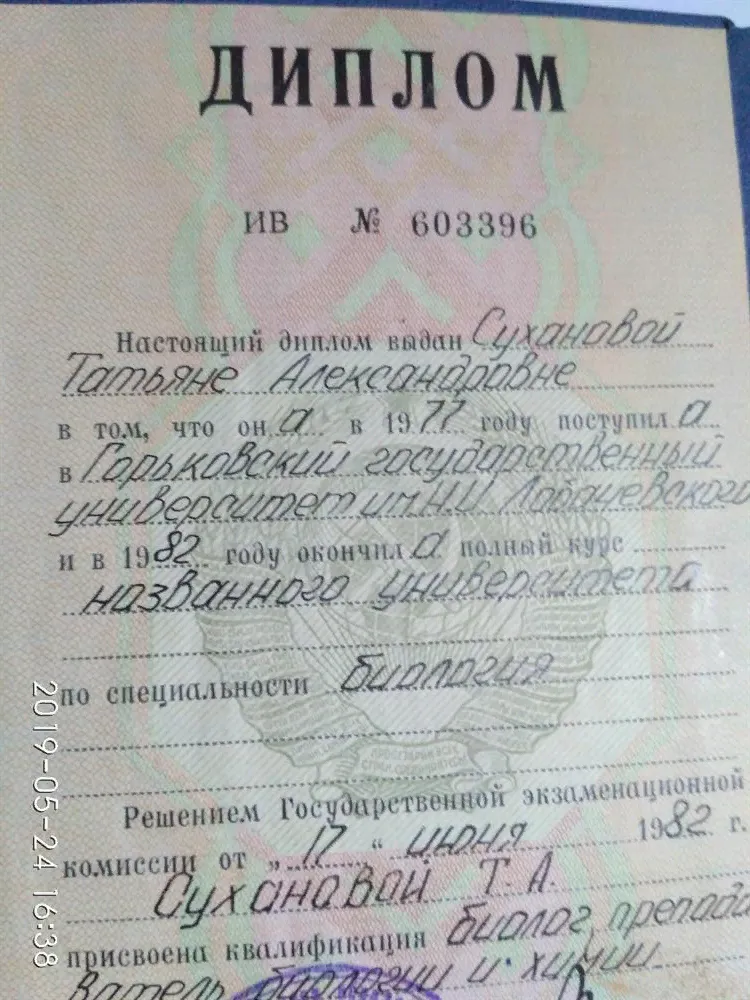 ДИПЛОМ
ИВ № 603396
Настоящий диплом выдан Сухановой
Татьяне Александровне
в том, что он а в 1977 году поступил а
в Горьковский государственный
университет им. Н.И. Лобачевского
и в 1982 году окончил а полный курс
названного университета
по специальности биология
Решением Государственной экзаменационной
комиссии от „ 17 “ июня 1982 г.
Сухановой Т. А.
присвоена квалификация биолог, препода
ватель биологии и химии
2019-05-24 16:38